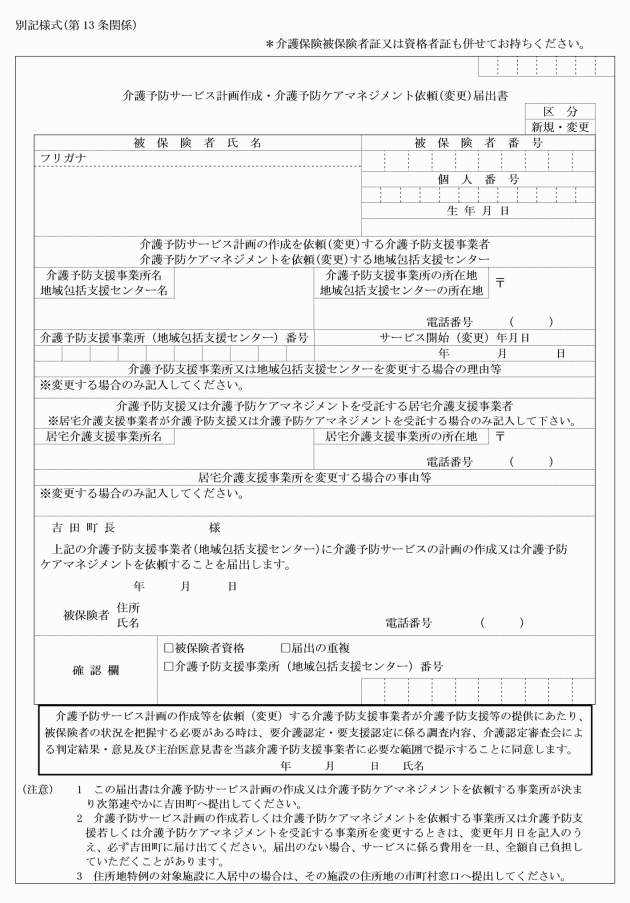 別記様式(第 13 条関係)
＊介護保険被保険者証又は資格者証も併せてお持ちください。
介護予防サービス計画作成・介護予防ケアマネジメント依頼(変更)届出書
区　分
新規・変更
被　保　険　者　氏　名
被　保　険　者　番　号
フリガナ
個　人　番　号
生 年 月 日
介護予防サービス計画の作成を依頼(変更)する介護予防支援事業者
介護予防ケアマネジメントを依頼(変更)する地域包括支援センター
介護予防支援事業所名
地域包括支援センター名
介護予防支援事業所の所在地
地域包括支援センターの所在地
〒
電話番号　　　(　　　)
介護予防支援事業所（地域包括支援センター）番号
サービス開始（変更）年月日
年　　　　月　　　　日
介護予防支援事業所又は地域包括支援センターを変更する場合の理由等
※変更する場合のみ記入してください。
介護予防支援又は介護予防ケアマネジメントを受託する居宅介護支援事業者
※居宅介護支援事業者が介護予防支援又は介護予防ケアマネジメントを受託する場合のみ記入して下さい。
居宅介護支援事業所名
居宅介護支援事業所の所在地
〒
電話番号　　　(　　　)
居宅介護支援事業所を変更する場合の事由等
※変更する場合のみ記入してください。
吉 田 町 長　　　　　　　　様
上記の介護予防支援事業者(地域包括支援センター)に介護予防サービスの計画の作成又は介護予防
ケアマネジメントを依頼することを届出します。
年　　　月　　　日
被保険者
住所
氏名
電話番号　　　　(　　　)
確 認 欄
□被保険者資格　　　□届出の重複
□介護予防支援事業所（地域包括支援センター）番号
介護予防サービス計画の作成等を依頼（変更）する介護予防支援事業者が介護予防支援等の提供にあたり、
被保険者の状況を把握する必要がある時は、要介護認定・要支援認定に係る調査内容、介護認定審査会によ
る判定結果・意見及び主治医意見書を当該介護予防支援事業者に必要な範囲で提示することに同意します。
年　　　月　　　日　　氏名
(注意)　　1　この届出書は介護予防サービス計画の作成又は介護予防ケアマネジメントを依頼する事業所が決ま
り次第速やかに吉田町へ提出してください。
2　介護予防サービス計画の作成若しくは介護予防ケアマネジメントを依頼する事業所又は介護予防支
援若しくは介護予防ケアマネジメントを受託する事業所を変更するときは、変更年月日を記入のう
え、必ず吉田町に届け出てください。届出のない場合、サービスに係る費用を一旦、全額自己負担し
ていただくことがあります。
3　住所地特例の対象施設に入居中の場合は、その施設の住所地の市町村窓口へ提出してください。